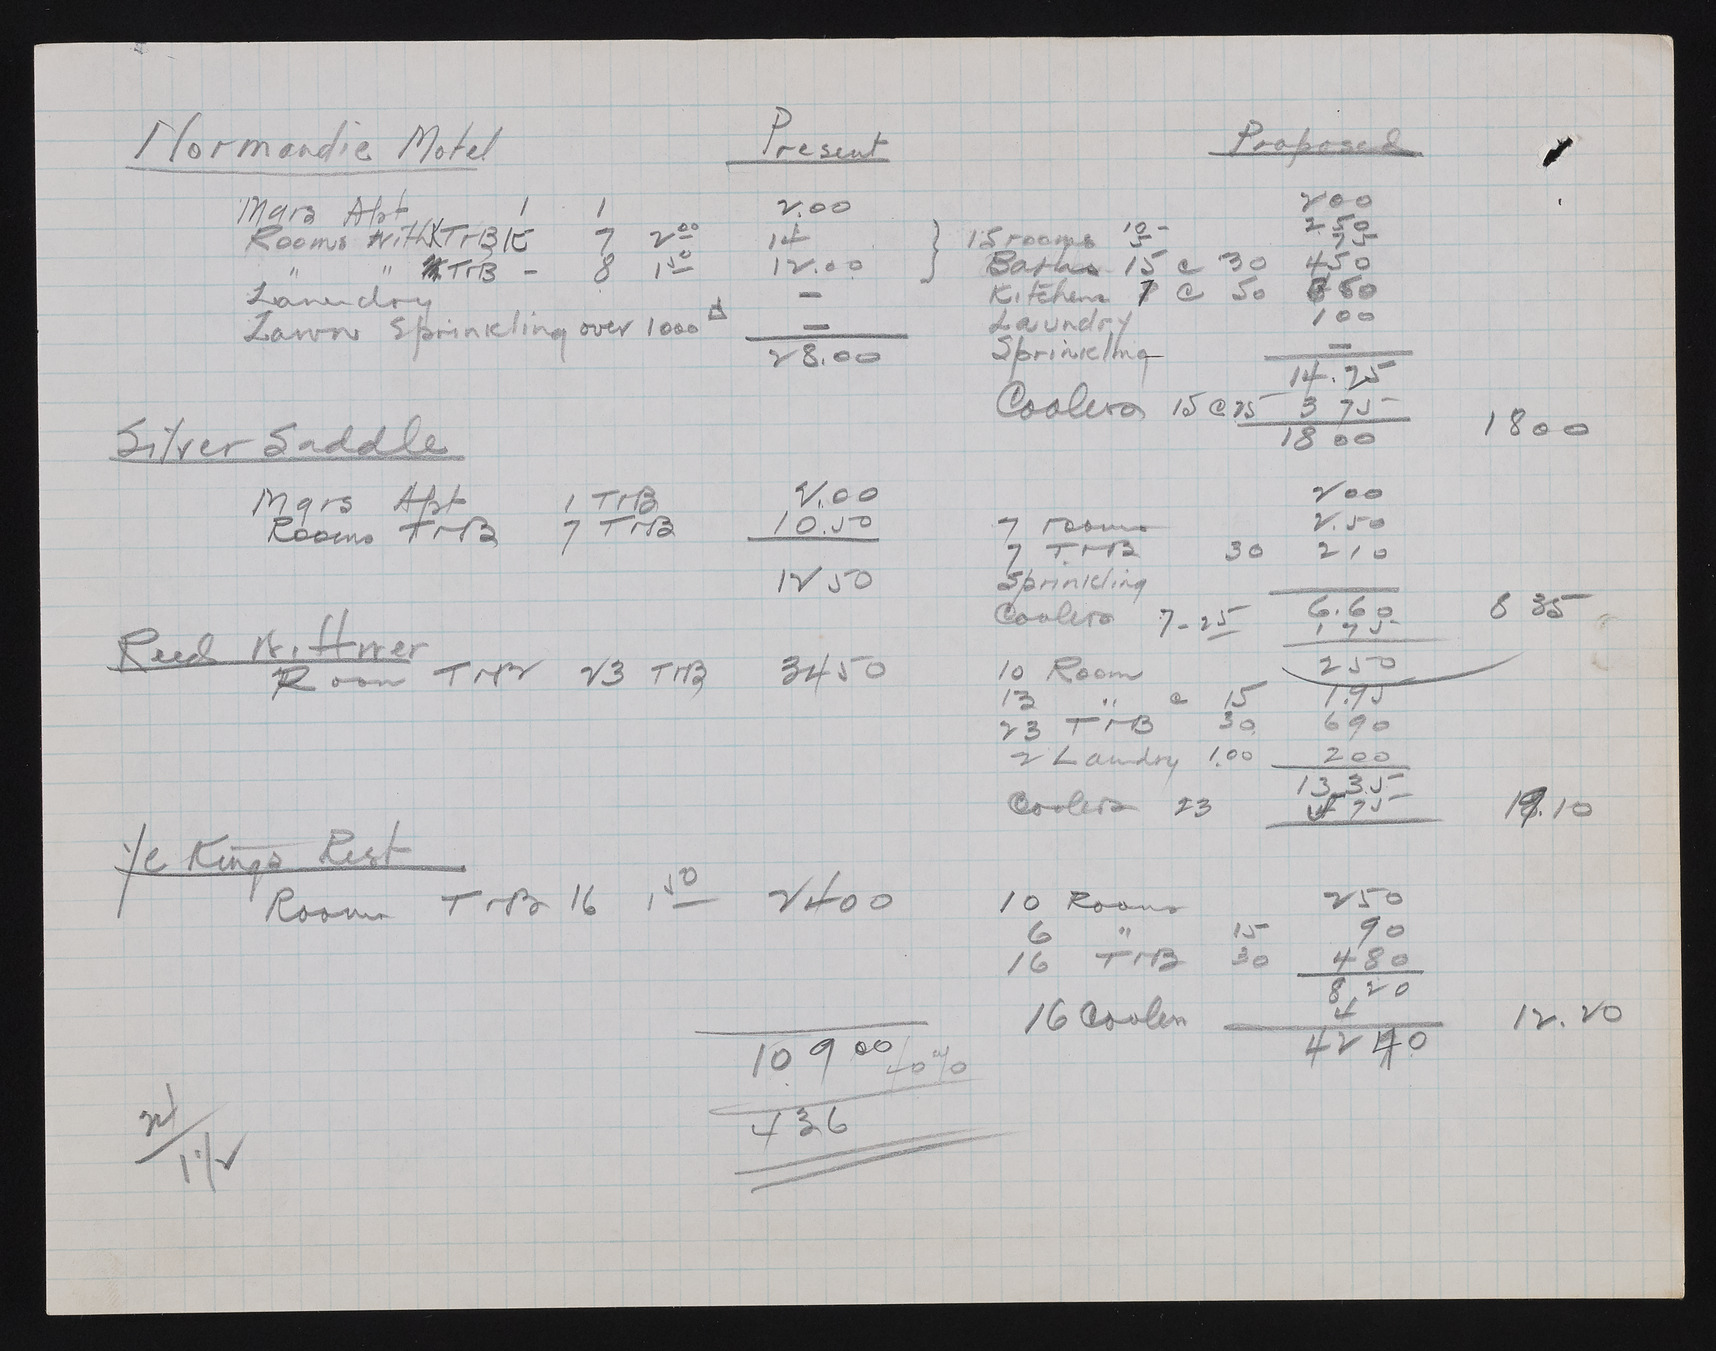 Normandie Motel Present Proposed
Mgrs Apt 1 1 2.00 200
Rooms With K TrB 15 7 2.00 14 15 rooms 10 - 2.50
5 75
" " TrB - 8 1.50 12.00 Baths 15 @ 30 450
Laundry — Kitchens 7 @ 50
Lawn Sprinkling over 1000 — Laundry 100
28.00 Sprinkling —
14.25
Coolers 15 @ 25 3 75
18 00 18 00
Silver Saddle
Mgrs Apt 1 TrB 2.00 200
Rooms TrB 7 TrB 10.50 7 rooms 2.50
7 TrB 30 210
12 50 Sprinkling
6.60 8 35
Coolers 7-25 1 75
Reed
Room 23 TrB 3450 10 Room 250
13 " @ 15 1.95
23 TrB 30 690
2 Laundry 1.00 200
13 35
Coolers 23 75 .10
Ye Kings Rest
Rooms TrB 16 1.50 2400 10 Rooms 250
6 " 15 90
16 TrB 30 480
8,20
16 Coolers 4 12.20
109 00 40% 42 40
436